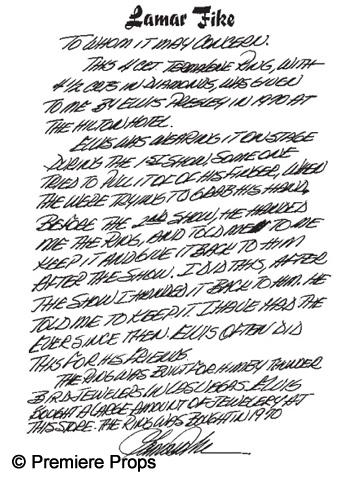 Lamar Fike
TO WHOM IT MAY CONCERN.
THIS 4 CET TERMAGENE RING, WITH
4 1/2 CETS IN DIAMONDS, WAS GIVEN
TO ME BY ELVIS PRESLEY IN 1970 AT
THE HILTON HOTEL.
ELVIS WAS WEARING IT ON STAGE
DURING THE 1ST SHOW SOME ONE
TRIED TO PULL IT OF OF HIS FINGER, WHEN
THE WERE TRYING TO GRAB HIS HAND,
BEFORE THE 2ND SHOW, HE HANDED
ME THE RING, AND TOLD ME TO ME
KEEP IT AND GIVE IT BACK TO HIM
AFTER THE SHOW. I DID THIS, AFTER
THE SHOW I HANDED IT BACK TO HIM. HE
TOLD ME TO KEEP IT. I HAVE HAD THE
EVER SINCE THEN. ELVIS OFTEN DID
THIS FOR HIS FRIENDS.
THE RING WAS BUILT FOR HIM BY THUNDER
BIRD JEWELERS IN LAS VEGAS. ELVIS
BOUGHT A LARGE AMOUNT OF JEWELERY AT
THIS STORE. THE RING WAS BOUGHT IN 1970
© Premiere Props